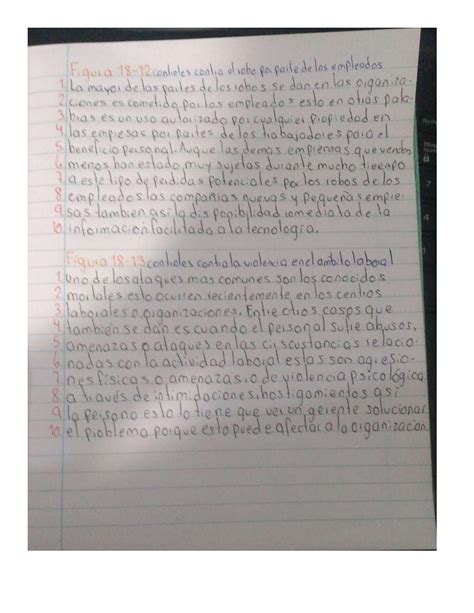 Figura 18-12 controles contra el robo por parte de los empleados
1. La mayor de las partes de los robos se dan en las organiza-
2 ciones es cometido por los empleados esto en otras pala-
3 bras es un uso autorizado por cualquier propiedad en
4 las empresas por partes de los trabajadores para el
5. beneficio personal. Auque las demas empiensas que venden
6. menos han estado muy sujetas durante mucho tieeapo
7. a este tipo de perdidas potenciales por los robos de los
8 empleados las compañias nuevas y pequeñas empre-
9 sas tambien asi la dispopibilidad inmediata de la
10 información facilitado a la tecnologia.
Figura 18-13 controles contra la violexia en el ambito laboral
1. Uno de los ataques mas comunes son los conocidos
2 mortales esto ocurren recientemente en los centros
3. laborales o organizaciones. Entre otros casos que
4. tambien se dan es cuando el personal sufre abusos,
5. amenazas o ataques en las circustancias relacio-
6. nadas con la actividad laboral estos son agresio-
7. nes físicas o amenazas, o de violencia psicológica
8 a través de intimidaciones, hostigamientos así
9 la persona esto lo tiene que ver un gerente solucionar
10. el problema porque esto puede afectar a la organización